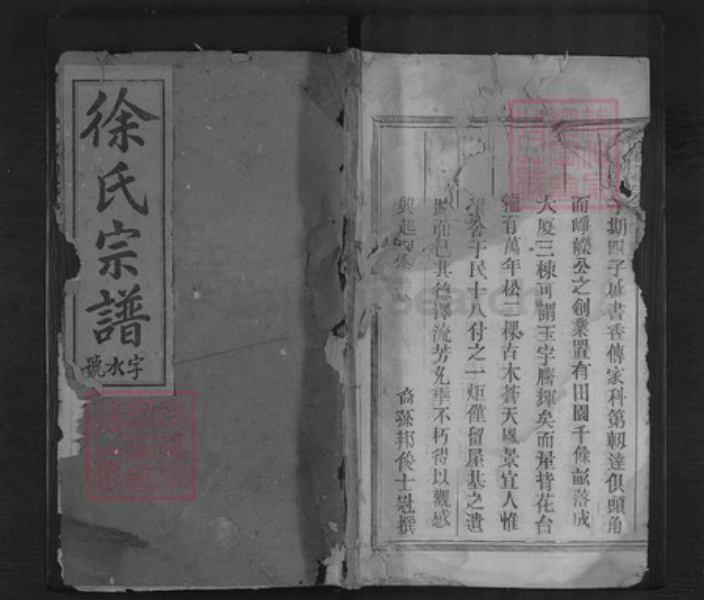 徐氏宗譜
字水號
斯四子雖書香傳家科第軔達俱頭角
而崢嶸公之創業置有田園千餘畝落成
大廈三棟可謂玉宇騰輝矣而屋背花台
有萬年松二棵古木蒼天風景宜人惟
于民十八付之一炬僅留屋基之遺
而已其德澤流芳先事不朽得以觀感
興起
裔孫邦俊士冠撰